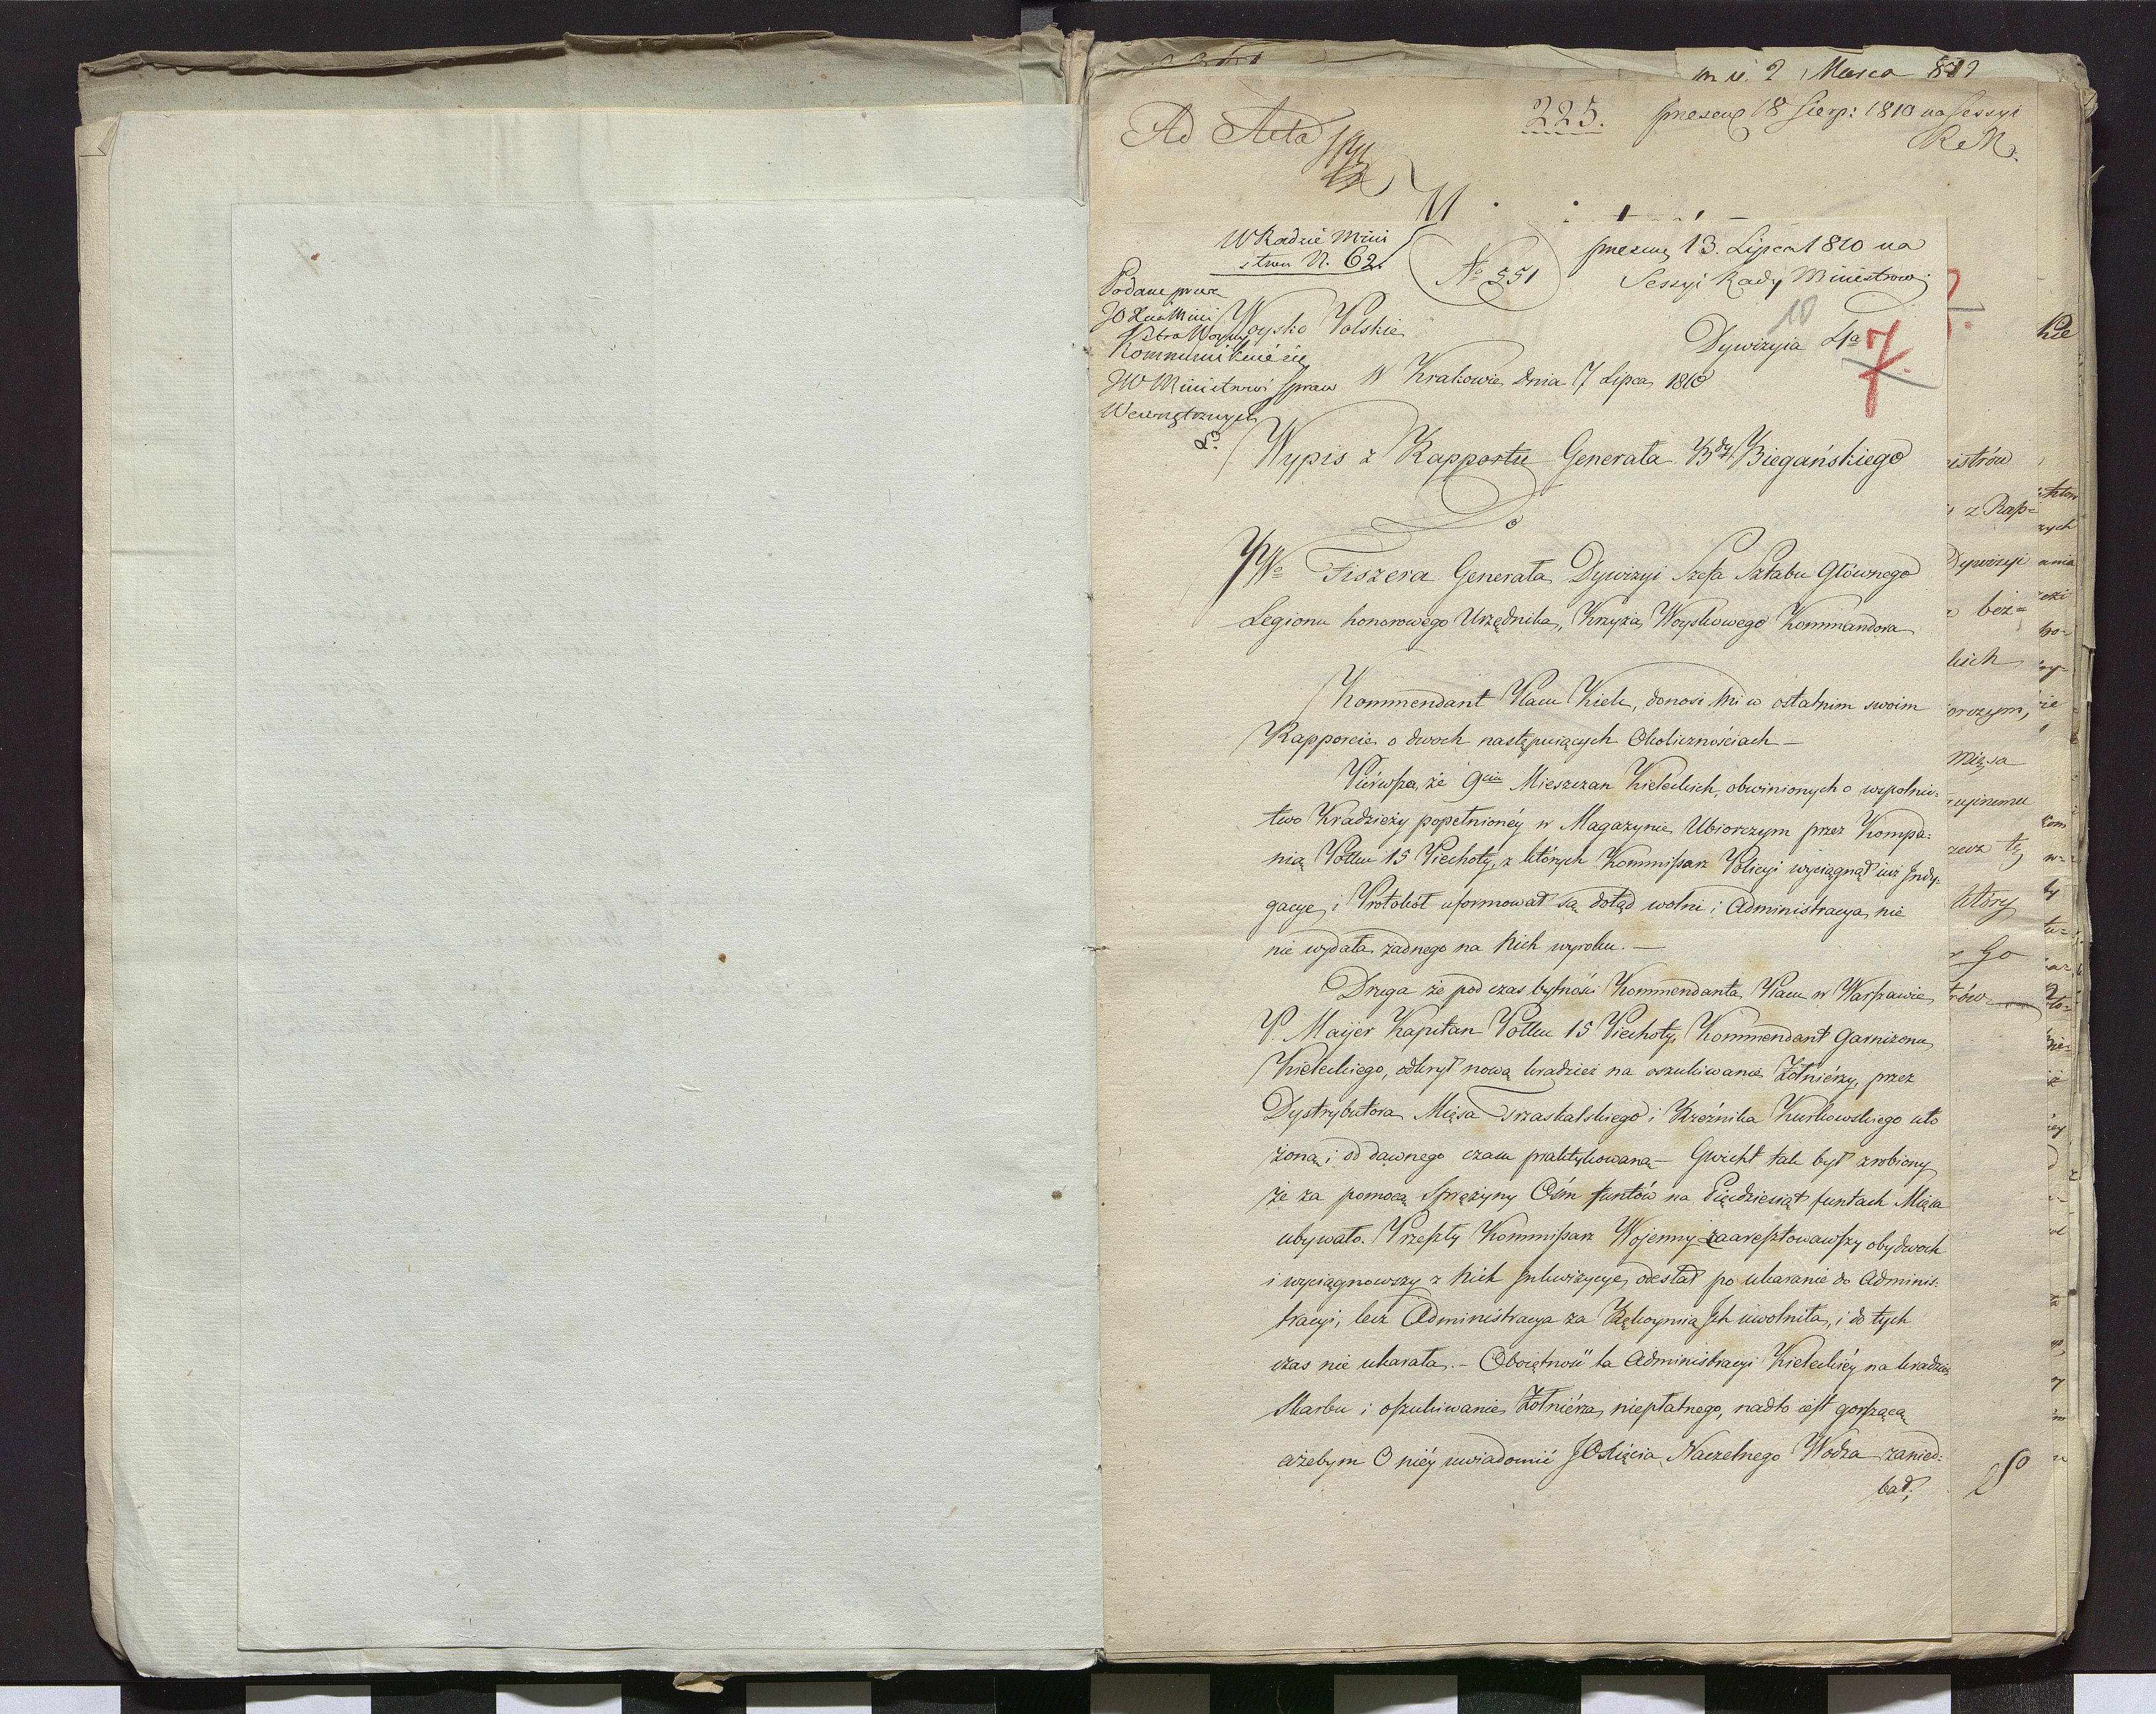 m. v. 2 Marca 812
Ad Acta
225.
prezent 18 Sierp: 1810 na Sessyi
R. M.
W Radzie Mini
strów N. 62.
No 551
prezent 13. Lipca 1810 na
Sessyi Rady Ministrow
Podane przez
JO Xcia Mini
stra Woyny
Kommunikuie się
JW Ministrowi Spraw
Wewnętrznych
10
7.
Woysko Polskie
Dywizyia 4ta
W Krakowie dnia 7 Lipca 1810
Wypis z Rapportu Generała Bdy Biegańskiego
Do
JWo Fiszera Generała Dywizyi Szefa Sztabu Głównego
Legionu honorowego Urzędnika, Krzyża Woyskowego Kommandora
Kommendant Placu Kielc, donosi mi w ostatnim swoim
Rapporcie o dwoch następuiących Okolicznościach —
Piérwsza, że 9ciu Mieszczan Kieleckich, obwinionych o wspolnic-
two Kradzieży popełnionéy w Magazynie Ubiorczym przez Kompa-
nią Półku 15 Piechoty, z których Kommissarz Policyi wyciągnął iuż Indy-
gacye, i Protokół uformował są dotąd wolni i Administracya nie
nie wydała żadnego na Nich wyroku. —
Druga że pod czas bytności Kommendanta Placu w Warszawie
P. Maijer Kapitan Półku 15 Piechoty, Kommendant Garnizonu
Kieleckiego, odkrył nową kradzież na oszukiwanie Żołniérzy, przez
Dystrybutora Mięsa Trzaskalskiego i Rzeźnika Kurkowskiego uło
żoną i od dawnego czasu praktykowaną — Gwicht tak był zrobiony
że za pomocą Sprężyny Ośm funtów na Pięćdziesiąt funtach Mięsa
ubywało. Przeszły Kommissarz Wojenny zaaresztowawszy obydwoch
i wyciągnowszy z Nich Inkwizycye, odesłał po ukaranie do Adminis-
tracyi, lecz Administracya za Rękoymią Ich uwolniła, i do tych
czas nie ukarała. — Oboiętność ta Administracyi Kieleckiéy na kradzież
Skarbu i oszukiwanie Żołniérza niepłatnego, nadto iest gorszącą
ażebym O niéy uwiadomić JOXięcia Naczelnego Wodza zanied-
bał;